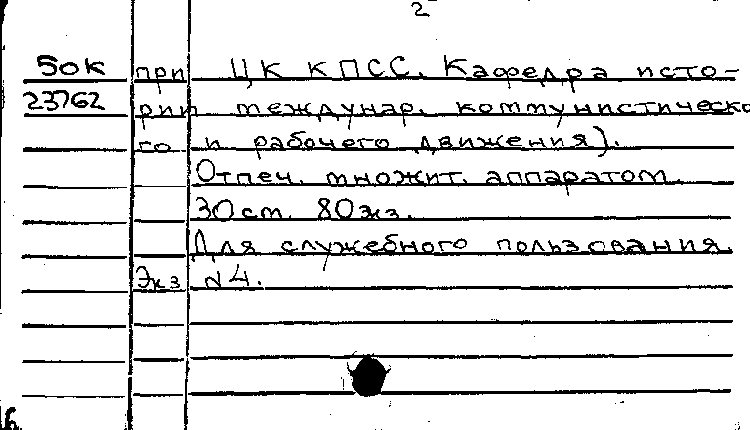 2
50К при ЦК КПСС. Кафедра исто-
23762 рии междунар. коммунистическо
го и рабочего движения).
Отпеч. множит. аппаратом.
30 ст. 80 экз.
Для служебного пользования.
Экз №4.